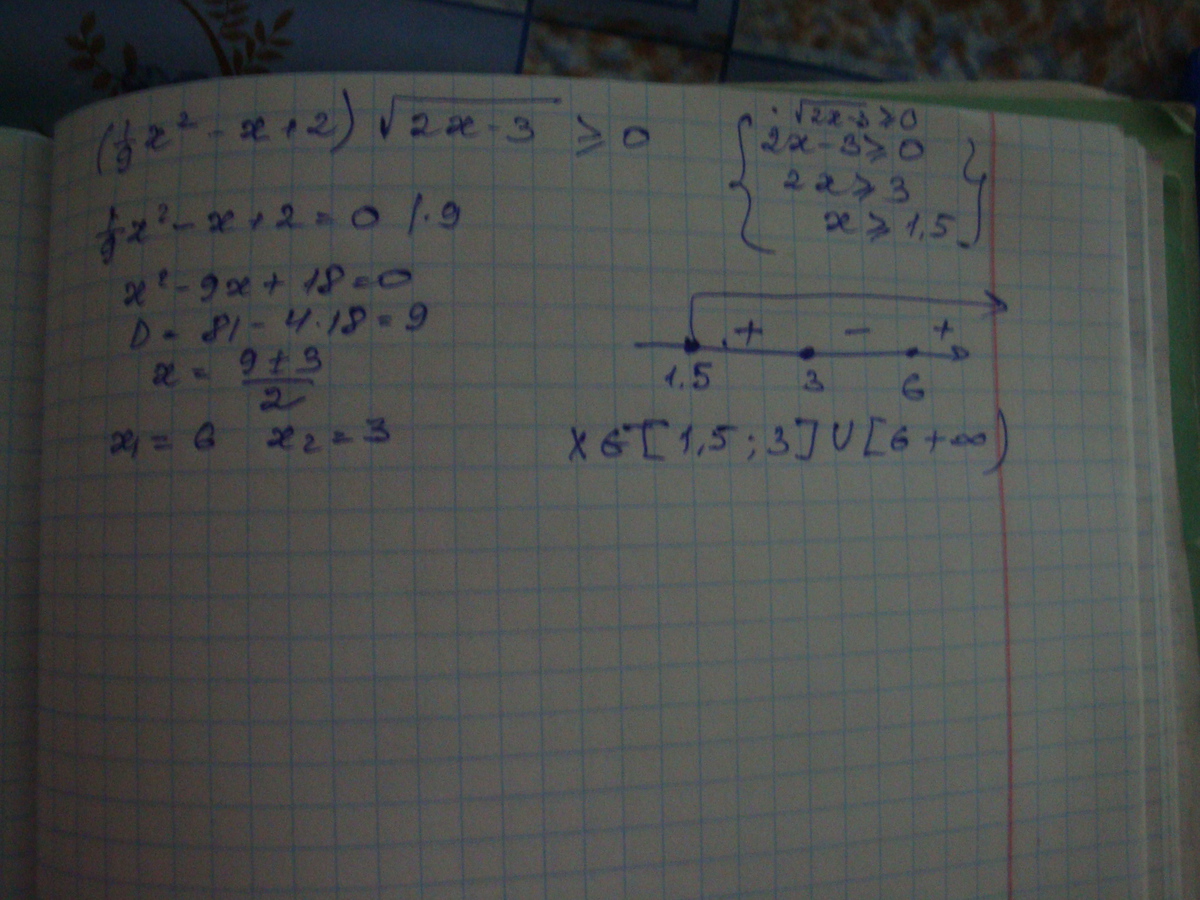 (1/9 x² - x + 2) √(2x - 3) ≥ 0
1/9 x² - x + 2 = 0 | · 9
x² - 9x + 18 = 0
D = 81 - 4 · 18 = 9
x = (9 ± 3)/2
x₁ = 6 x₂ = 3
{ √(2x-3) ≥ 0
2x - 3 ≥ 0
2x ≥ 3
x ≥ 1,5 }
+ - +
1.5 3 6
x ∈ [1,5 ; 3] ∪ [6 +∞)